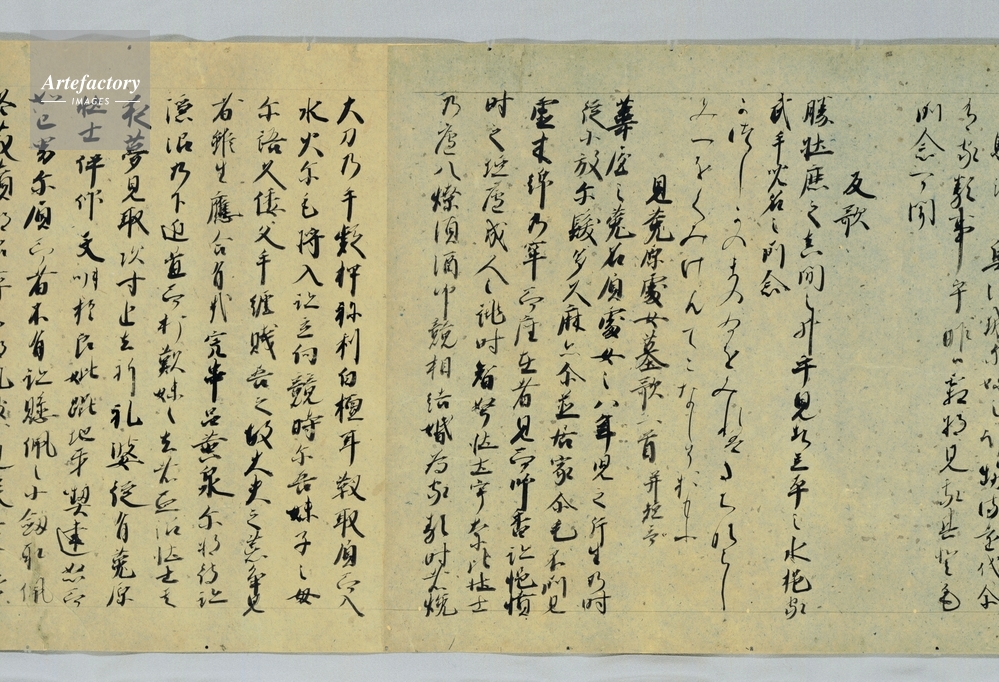 有家類事乎昨日霜将見我其登毛
所念可聞
反歌
勝壮鹿之真間之井乎見者立平之水挹家
武手兒名之所念
かつしかのままのゐをみれはたちならし
みつをくみけんてこなしそおもふ
見菟原處女墓歌一首 并短歌
葦屋之菟名負處女之八年兒之片生乃時
従小放尓髪多久麻弖尓並居家尓毛不所見
虚木綿乃牢而座在者見而師香跡悒憤
時之垣廬成人之誂時智弩壮士宇奈比壮士
乃廬八燎須酒師競相結婚為家類時者焼
大刀乃手穎押祢利白檀弓靫取負而入
水火尓毛将入跡立向競時尓吾妹子之母
尓語久倭文手纒賤吾之故大夫之荒争見
者雖生應合有哉宍串呂黄泉尓将待跡
隠沼乃下延置而打歎妹之去者血沼壮士其
夜夢見取次寸追去祁礼婆後有菟原
壮士伊仰天叫於良妣地牙喫建怒而
如己男尓負而者不有跡懸佩之小劔取佩
Artefactory
IMAGES